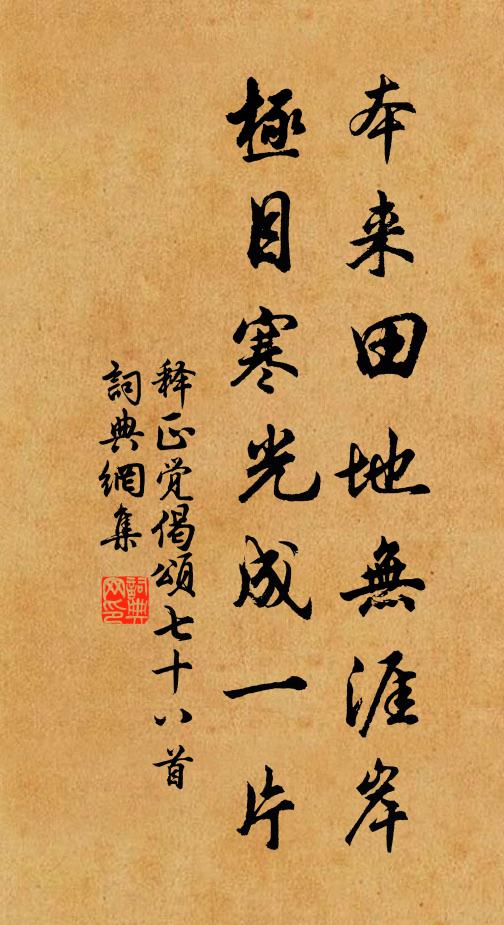 本来田地無涯岸
極目寒光成一片
释正觉偈頌七十八首
詞典網集
詞典网印